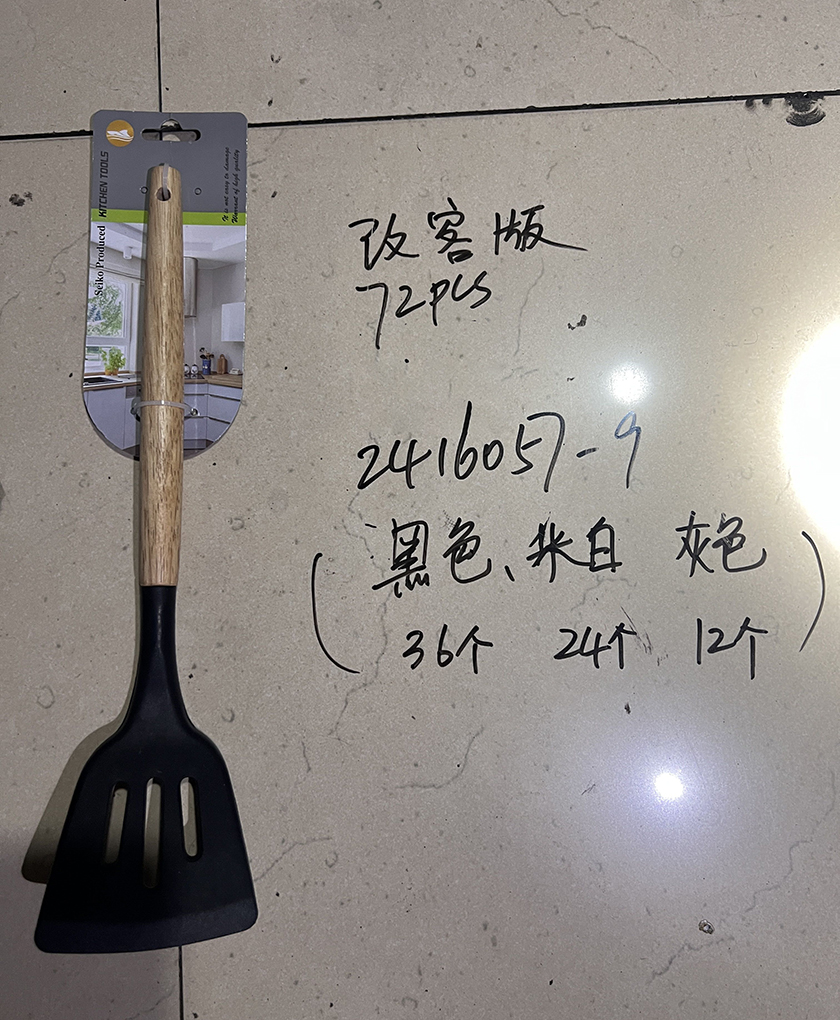 KITCHEN TOOLS
Seiko Produced
It is not easy to damage
Warrant of high quality
改客版
72pcs
2416057-9
(黑色、米白 灰色)
36个 24个 12个